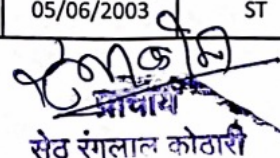 05/06/2003 ST
प्राचार्य
सेठ रंगलाल कोठारी